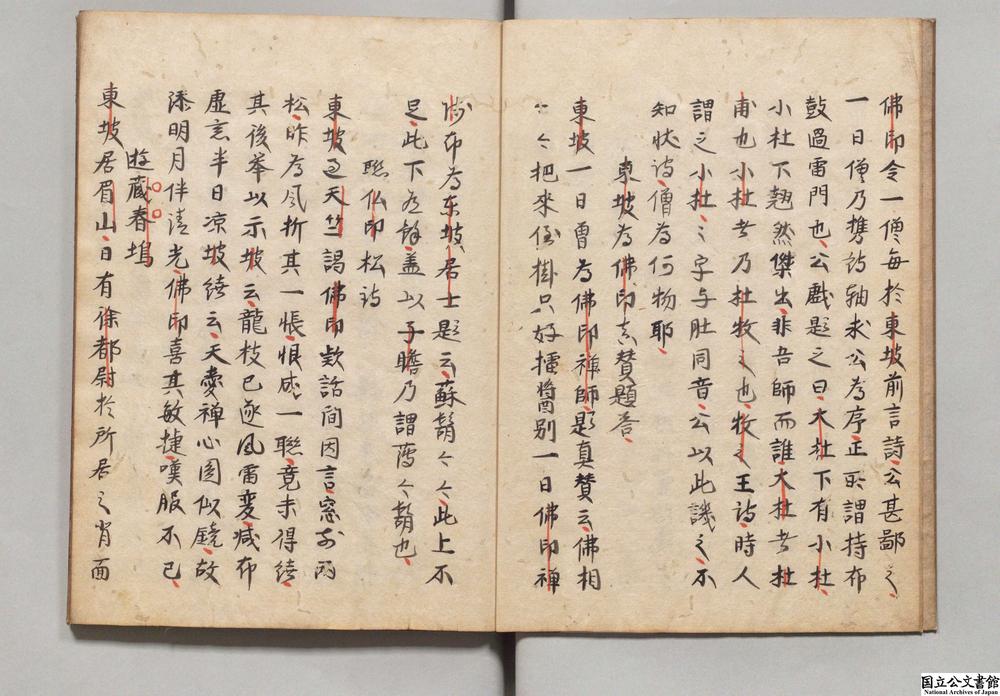 佛印令一僧每於東坡前言詩公甚鄙之
一日僧乃携詩軸求公為序正所謂持布
鼓過雷門也公戲題之曰大杜下有小杜
小杜下翹然傑出非吾師而誰大杜者杜
甫也小杜者乃杜牧之也牧之王詩時人
謂之小杜之字与肚同音公以此譏之不
知狀詩僧為何物耶
東坡為佛印真賛題答
東坡一日曾為佛印禅師題真賛云佛相
々々把来倒掛只好擂醬別一日佛印禅
師布為东坡居士題云蘇鬍々々此上不
足此下有餘盖以子瞻乃謂蘇々鬍也
聮仏印松詩
東坡過天竺謁佛印欵話間因言窓前両
松昨為風折其一悵恨成一聮竟未得續
其後挙以示坡云龍枝已逐風雷変减布
虚窓半日凉坡續云天愛禅心圓似鏡故
添明月伴清光佛印喜其敏捷嘆服不已
遊藏春塢
東坡居眉山日有徐都尉於所居之肖面
国立公文書館
National Archives of Japan